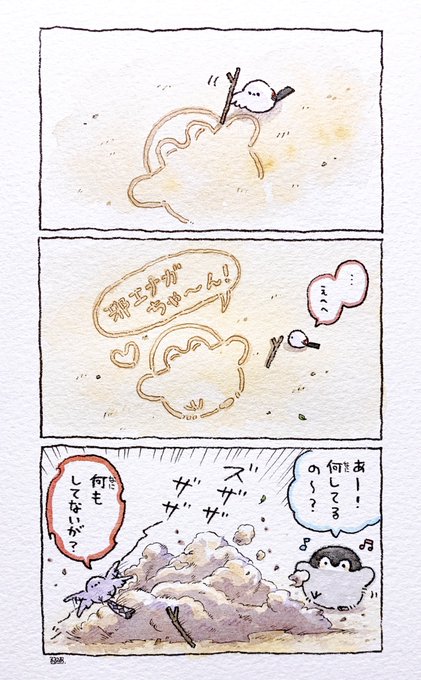 邪エナガ
ちゃ〜ん！
…
えへへ
あー！
何してる
の〜？
ズザザ
ザザ
ザ
何も
してないが？